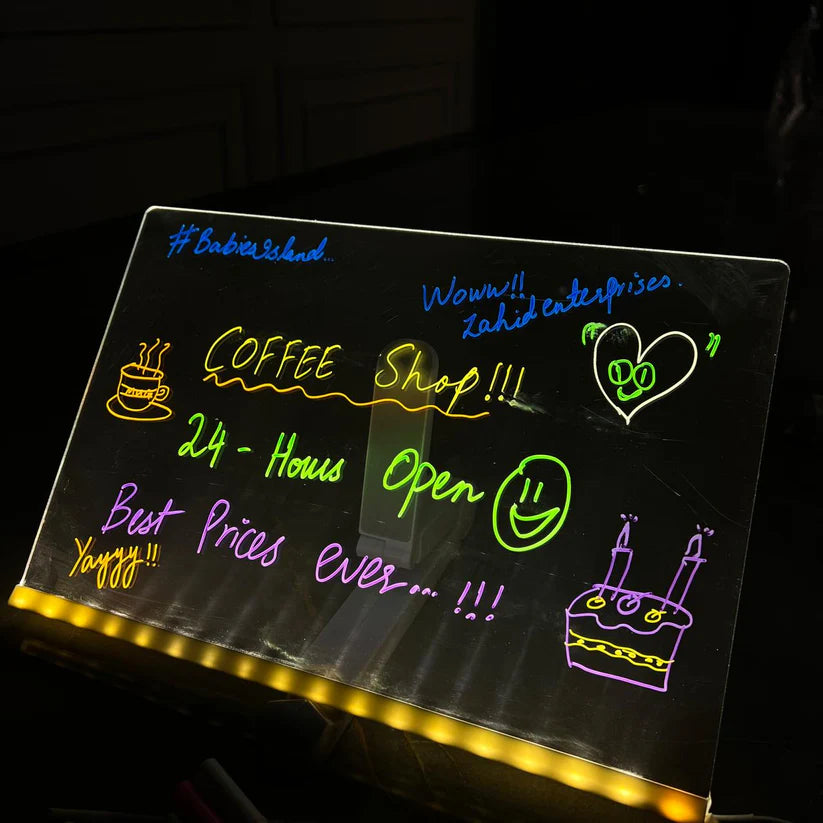 #BabiesIsland...
Woww!!
Zahid enterprises.
COFFEE Shop!!!
24-Hours Open
Best Prices ever... !!!
Yayyy!!